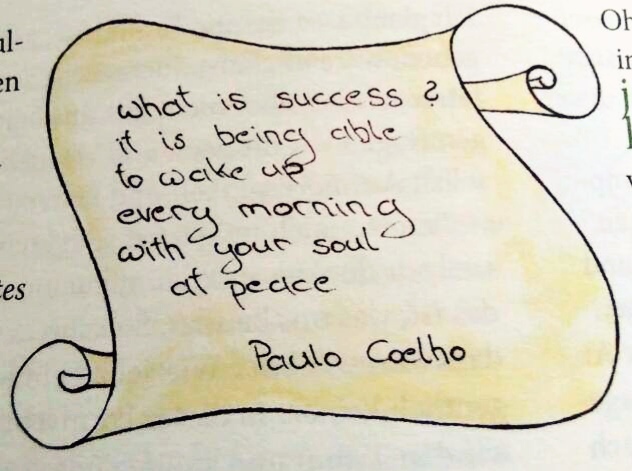 what is success?
it is being able
to wake up
every morning
with your soul
at peace
Paulo Coelho